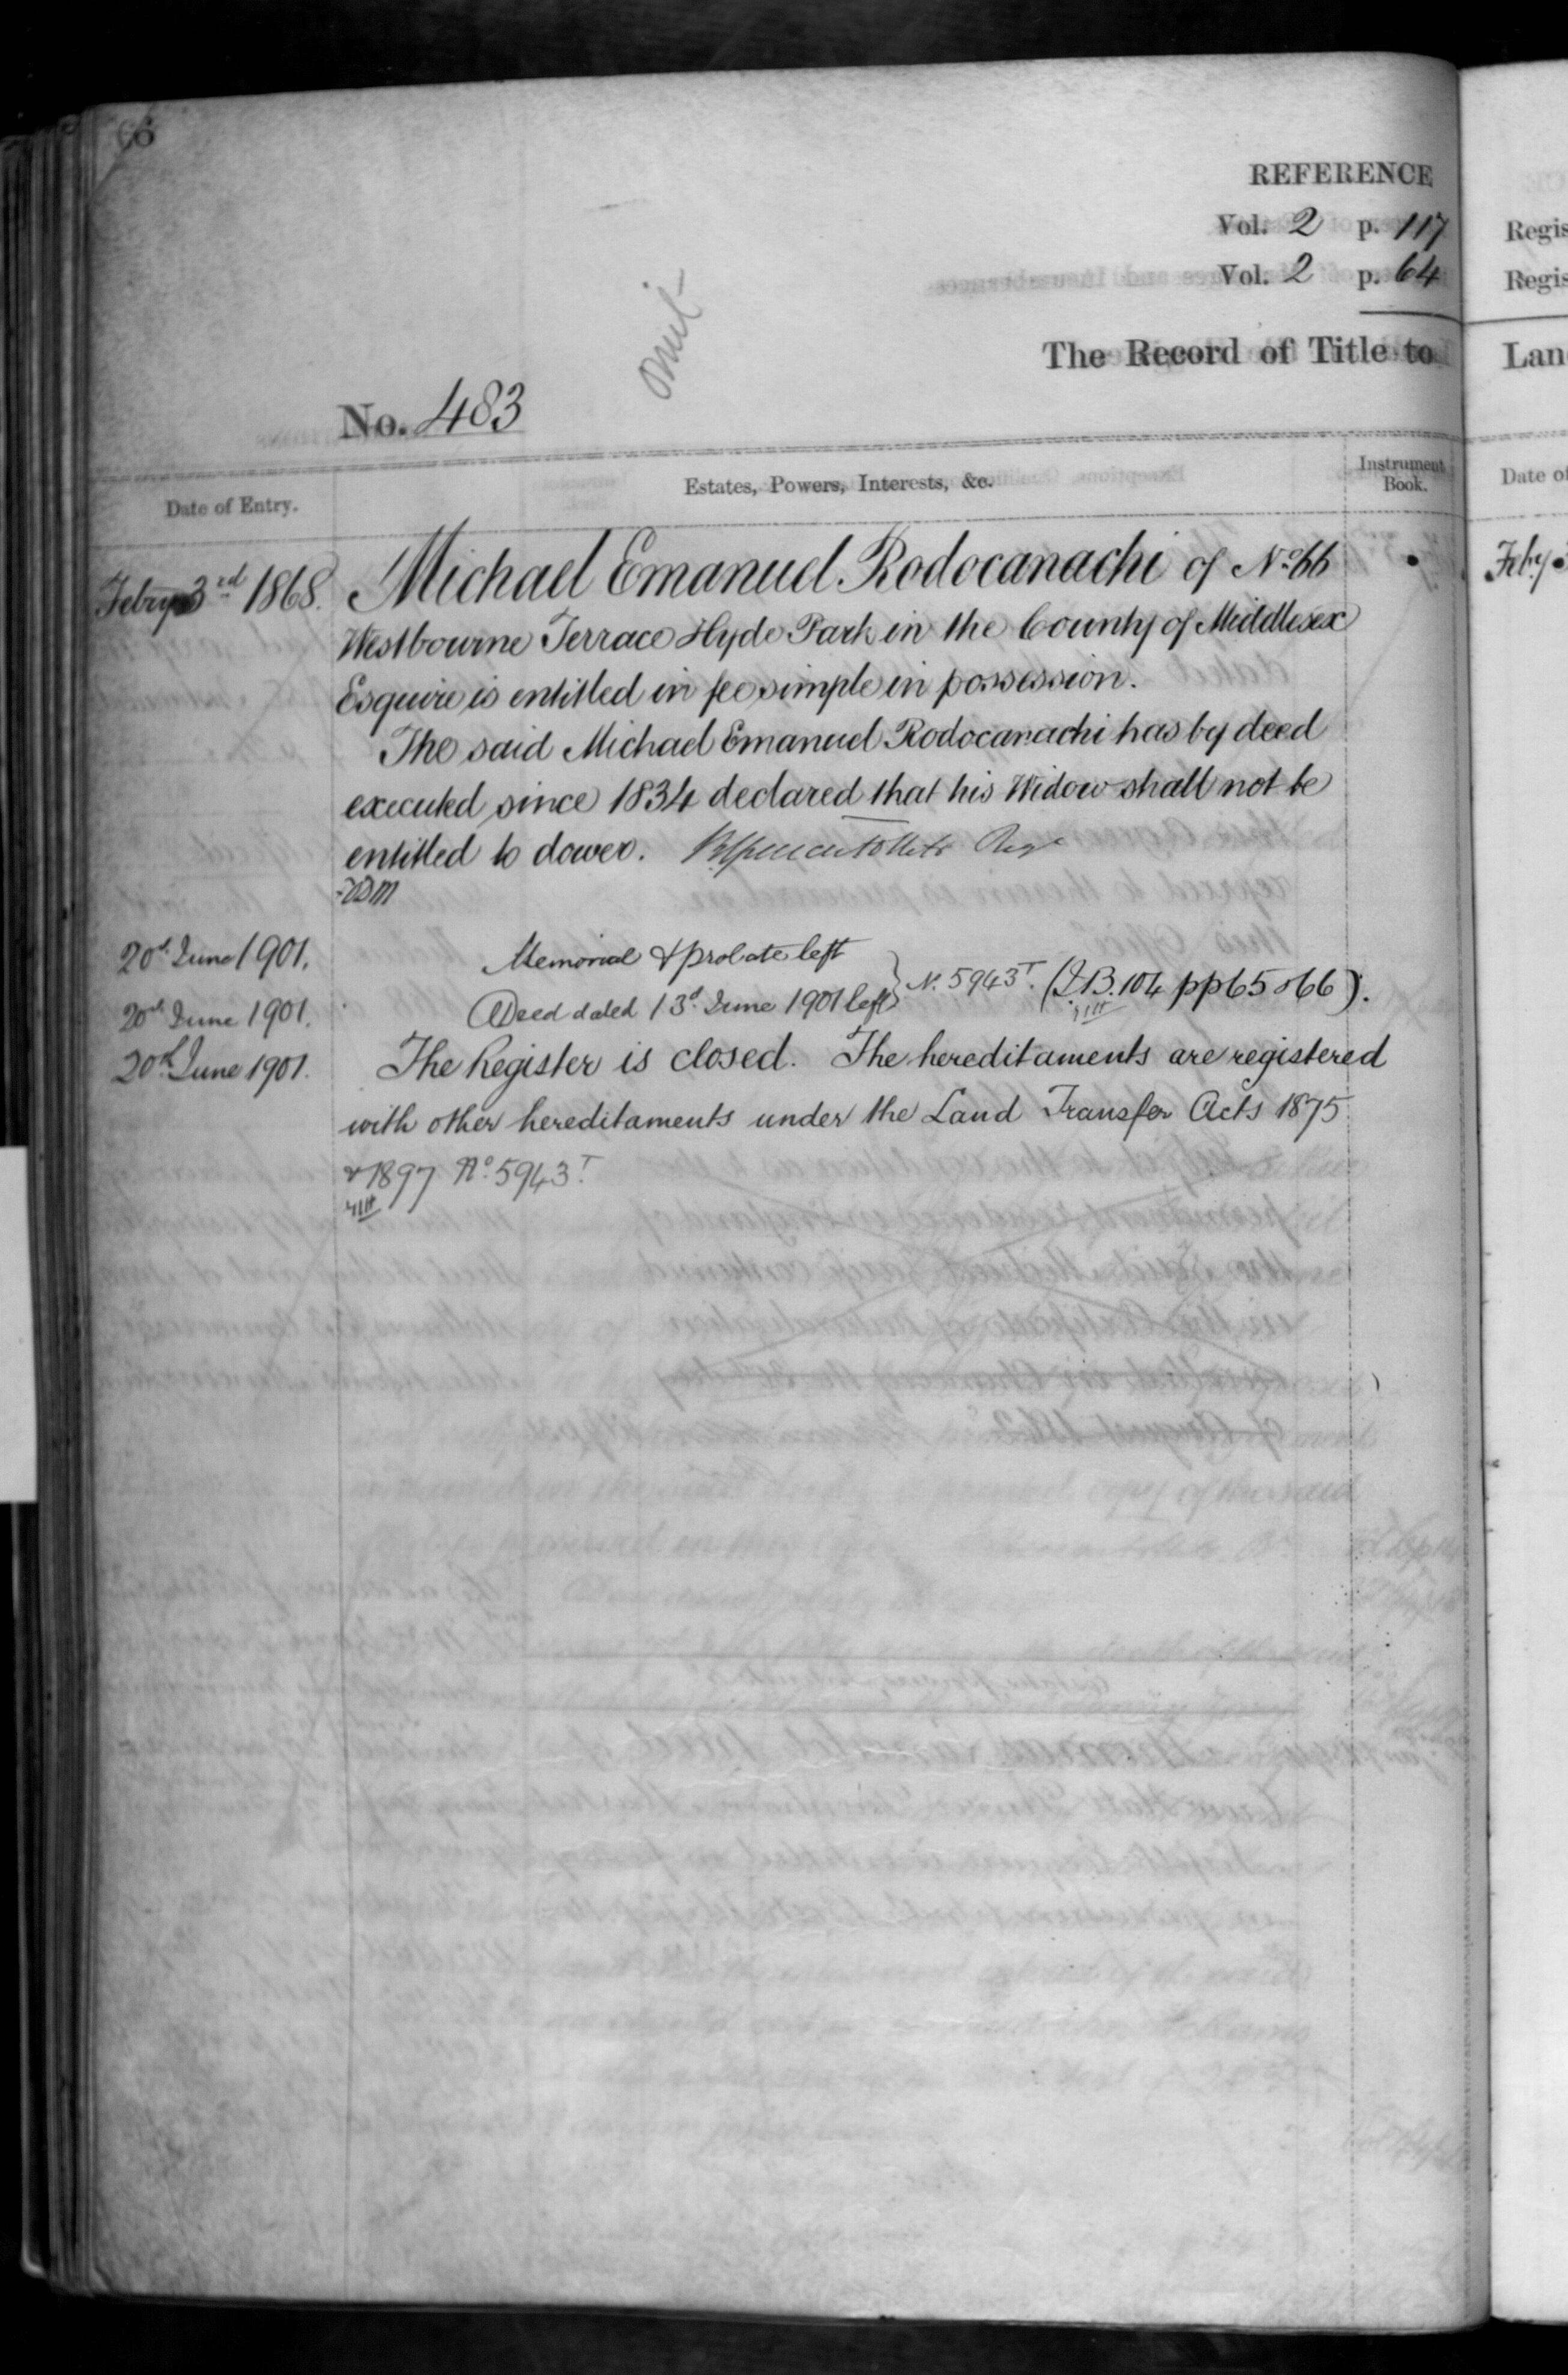 66
REFERENCE
Vol. 2 p. 117
Vol. 2 p. 64
omit
The Record of Title to
No. 483
Date of Entry.
Estates, Powers, Interests, &c.
Instrument
Book.
Febry 3rd 1868.
Michael Emanuel Rodocanachi of No. 66
Westbourne Terrace Hyde Park in the County of Middlesex
Esquire is entitled in fee simple in possession.
The said Michael Emanuel Rodocanachi has by deed
executed since 1834 declared that his Widow shall not be
entitled to dower.
20th June 1901. Memorial & probate left
20th June 1901. Deed dated 13th June 1901 left } No. 5943T. (I.B. 104 pp 65 & 66).
20th June 1901. The Register is closed. The hereditaments are registered
with other hereditaments under the Land Transfer Acts 1875
& 1897 No. 5943T.
Regis
Regis
Lan
Date of
Feby